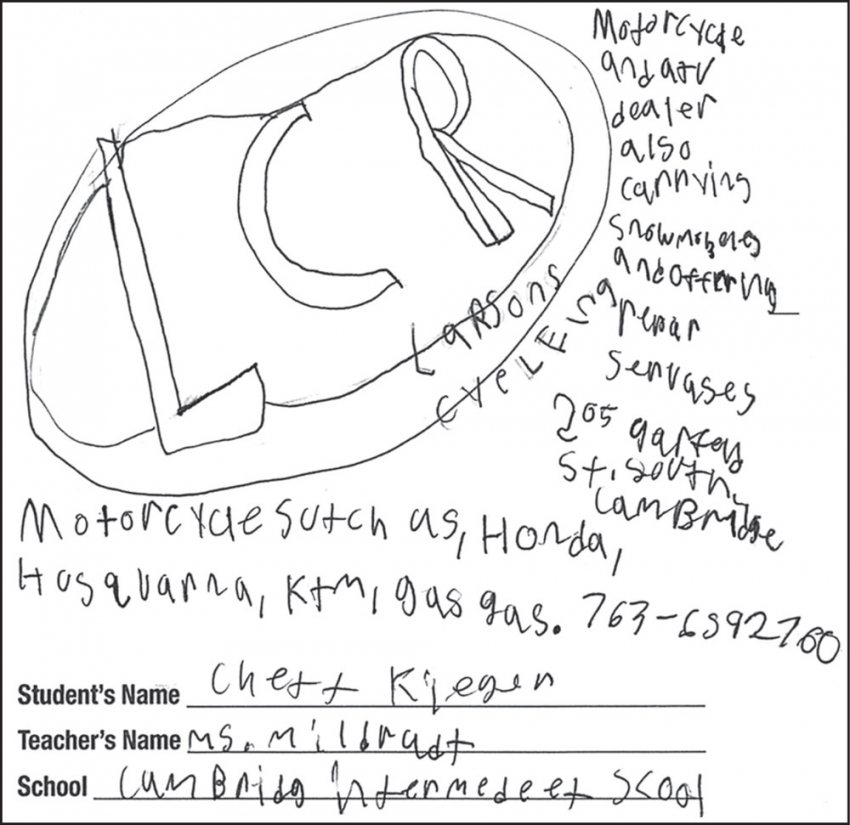 LCR
Larsons
cycleing
Motorcycle
and atv
dealer
also
carrying
snowmobeles
and offering
repar
servases
205 garfeld
St. South,
CamBridge
Motorcycle sutch as, Honda,
Husqvarna, Ktm, gas gas. 763-6892760
Student's Name Chett
Teacher's Name Ms. Mildradt
School CamBridg intermedeet Scool